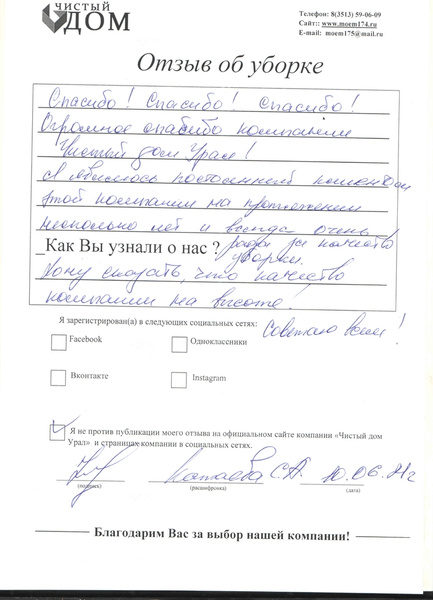 ЧИСТЫЙ
ДОМ
Телефон: 8(3513) 59-06-09
Сайт:: www.moem174.ru
E-mail: moem175@mail.ru
Отзыв об уборке
Спасибо! Спасибо! Спасибо!
Огромное спасибо компании
Чистый дом Урал!
Я являюсь постоянным клиентом
этой компании на протяжении
несколько лет и всегда очень
рада за качество
_Как Вы узнали о нас ?
уборки.
Хочу сказать, что качество
компании на высоте!
Советую всем!
Я зарегистрирован(а) в следующих социальных сетях:
Facebook
Одноклассники
Вконтакте
Instagram
Я не против публикации моего отзыва на официальном сайте компании «Чистый дом
Урал» и страницах компании в социальных сетях.
С.А. 10.06.21г
(подпись) (расшифровка) (дата)
Благодарим Вас за выбор нашей компании!